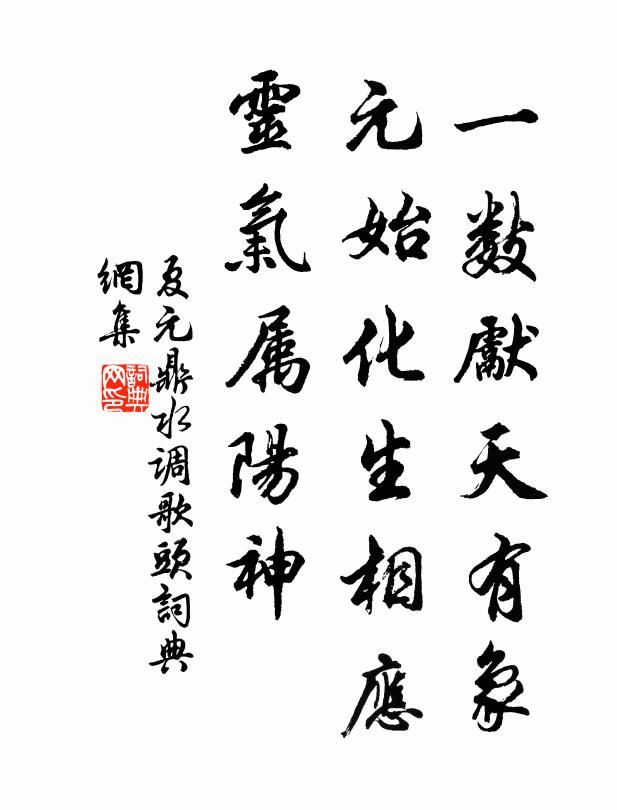 一数獻天有象
元始化生相應
靈氣属陽神
夏元鼎水调歌頭詞典
網集
詞典網印